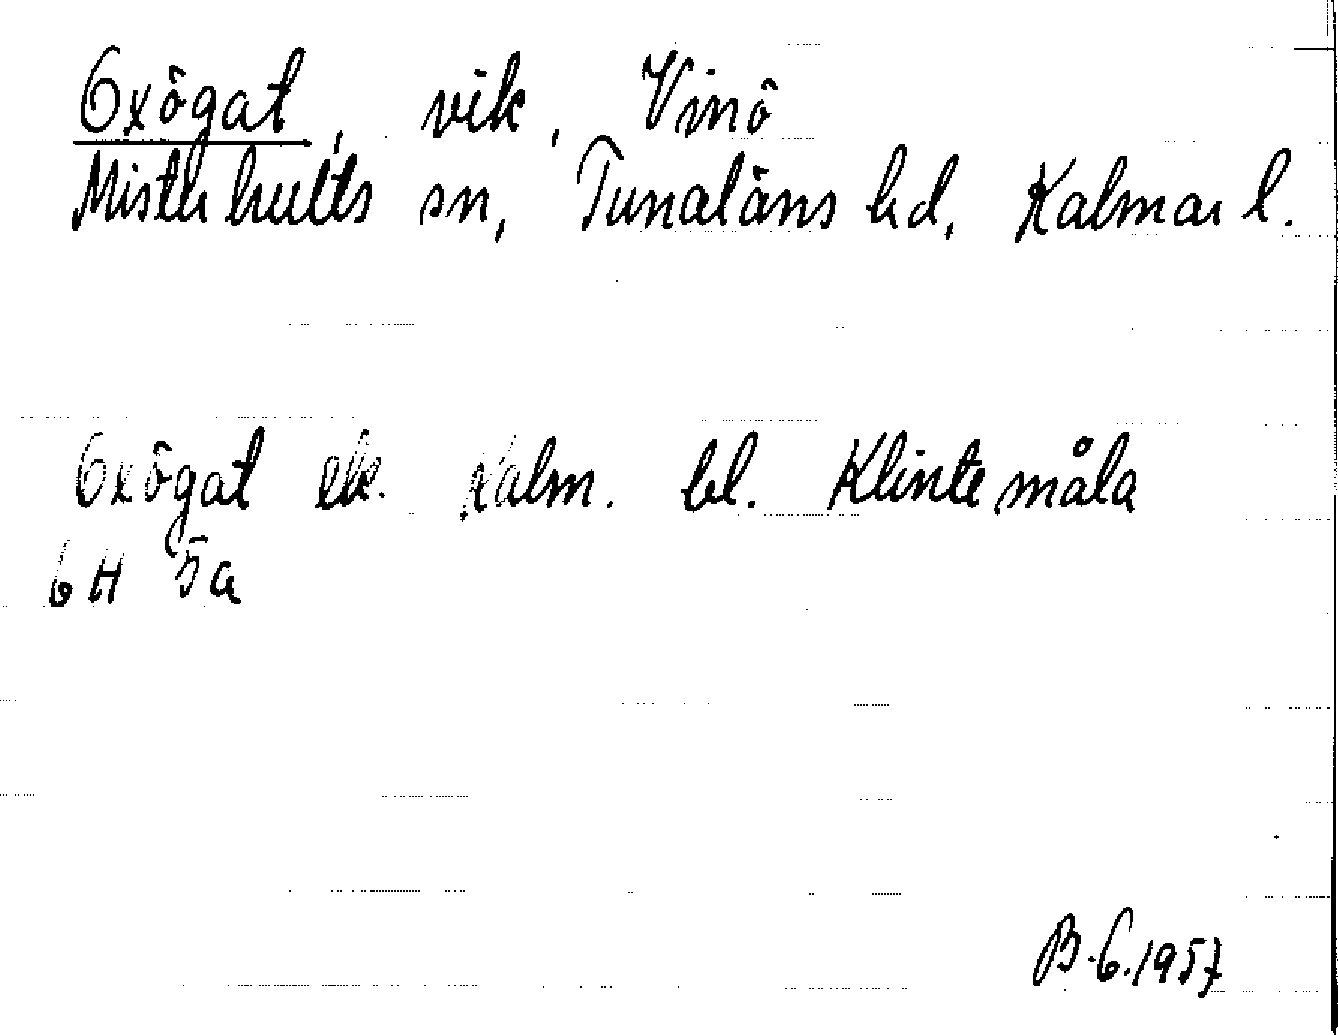 Oxögat, vik, Vinö
Misterhults sn, Tunaläns hd, Kalmar l.
Oxögat ek. Kalm. bl. Klintemåla
6H 5a
B.G.1957